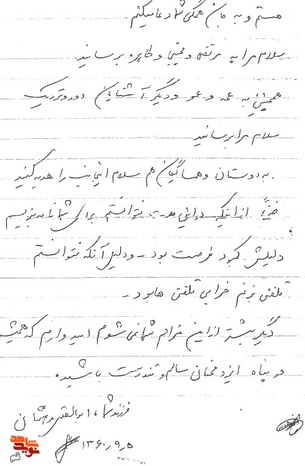 هستم و به جان همگی شما دعا میکنم.
سلام مرا به مرتضی و مجتبی و طاهره برسانید
همچنین به عمه و عمو و دیگر آشنایان دور و نزدیک
سلام مرا برسانید
به دوستان و همسایگان هم سلام اینجانب را هدیه کنید
ضمناً از اینکه در این مدت نتوانستم برای شما نامه بنویسم
دلیلش کمبود فرصت بود - و دلیل آنکه نتوانستم
تلفن بزنم خرابی تلفن ها بود -
دیگر بیشتر از این مزاحم شما نمی شوم امیدوارم که همیشه
در پناه ایزد منان سالم و تندرست باشید.
فرزند شما، ابوالفضل
۱۳۶۰،۹،۵